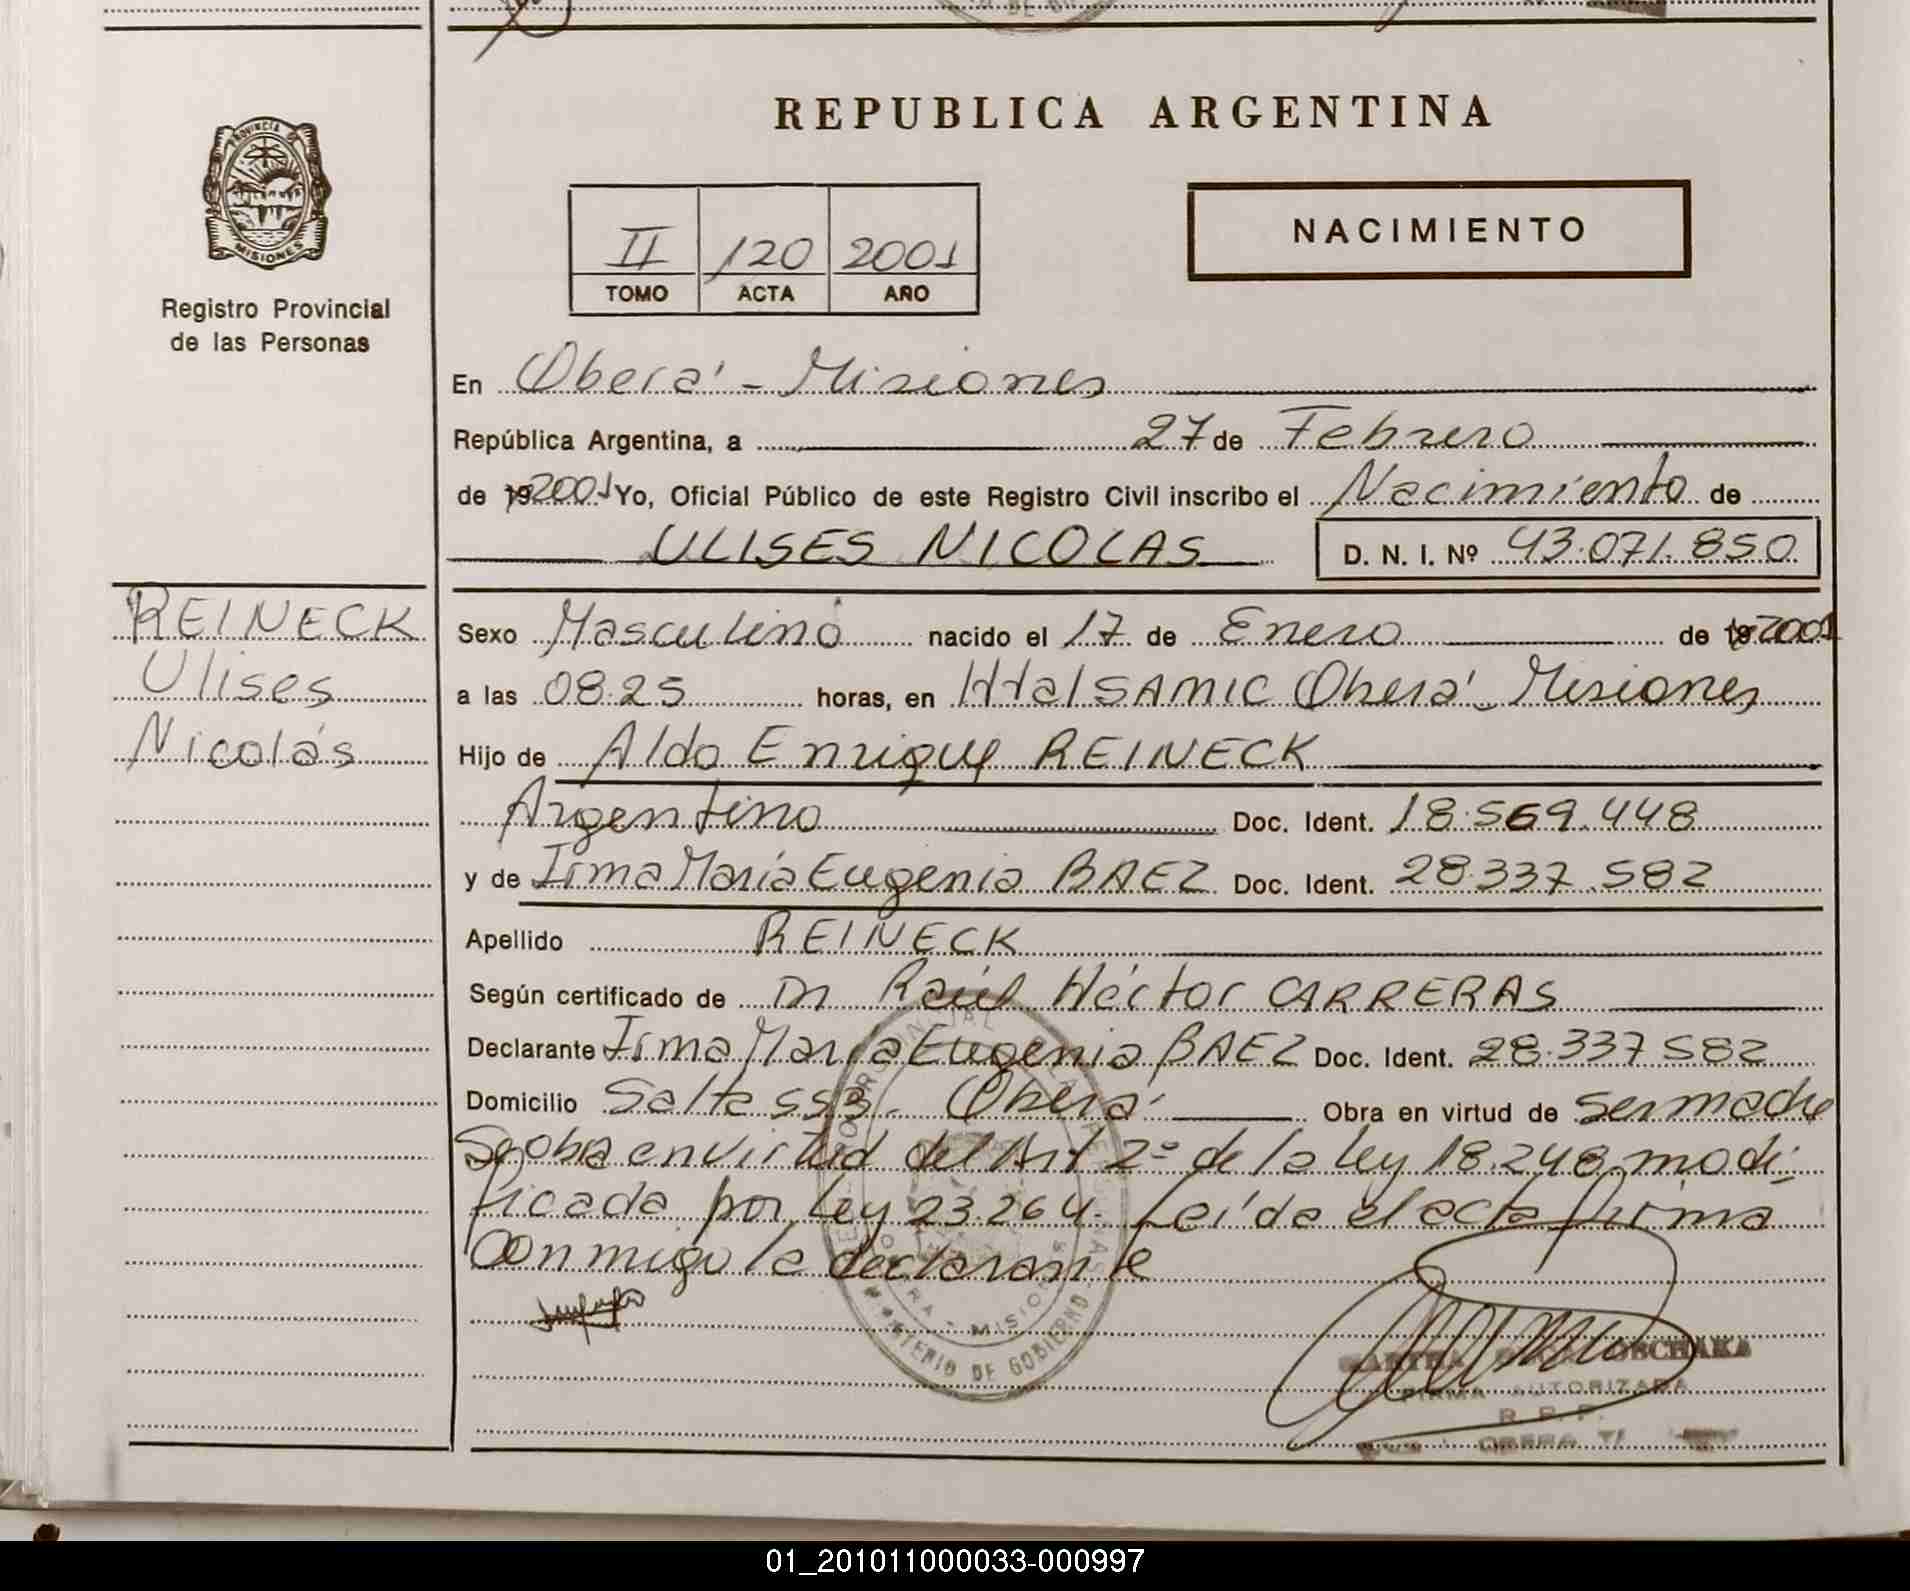 REPUBLICA ARGENTINA
PROVINCIA DE
MISIONES
Registro Provincial
de las Personas
II 120 2001
TOMO ACTA AÑO
NACIMIENTO
En Oberá - Misiones
República Argentina, a 27 de Febrero
de 19 2001 Yo, Oficial Público de este Registro Civil inscribo el Nacimiento de
ULISES NICOLAS D. N. I. Nº 43.071.850
REINECK
Ulises
Nicolás
Sexo Masculino nacido el 17 de Enero de 19 2001
a las 08.25 horas, en Htal SAMIC Oberá - Misiones
Hijo de Aldo Enrique REINECK
Argentino Doc. Ident. 18.569.448
y de Irma María Eugenia BAEZ Doc. Ident. 28.337.582
Apellido REINECK
Según certificado de Dr Raúl Héctor CARRERAS
Declarante Irma María Eugenia BAEZ Doc. Ident. 28.337.582
Domicilio Salta 553 - Oberá Obra en virtud de ser madre
Se obra en virtud del Art 2º de la Ley 18.248 modi-
ficada por Ley 23.264. Leída el acta firma
Conmigo la declarante
MINISTERIO DE GOBIERNO
MISIONES
FIRMA AUTORIZADA
R. P. P.
OBERA
01_201011000033-000997